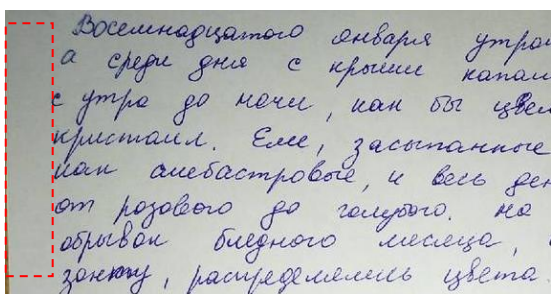 Восемнадцатого января утром
а среди дня с крыши капал
с утра до ночи, как бы цвел
кристалл. Ели, засыпанные
как алебастровые, и весь ден
от розового до голубого. На
обрывок бледного месяца,
распределились цвета.